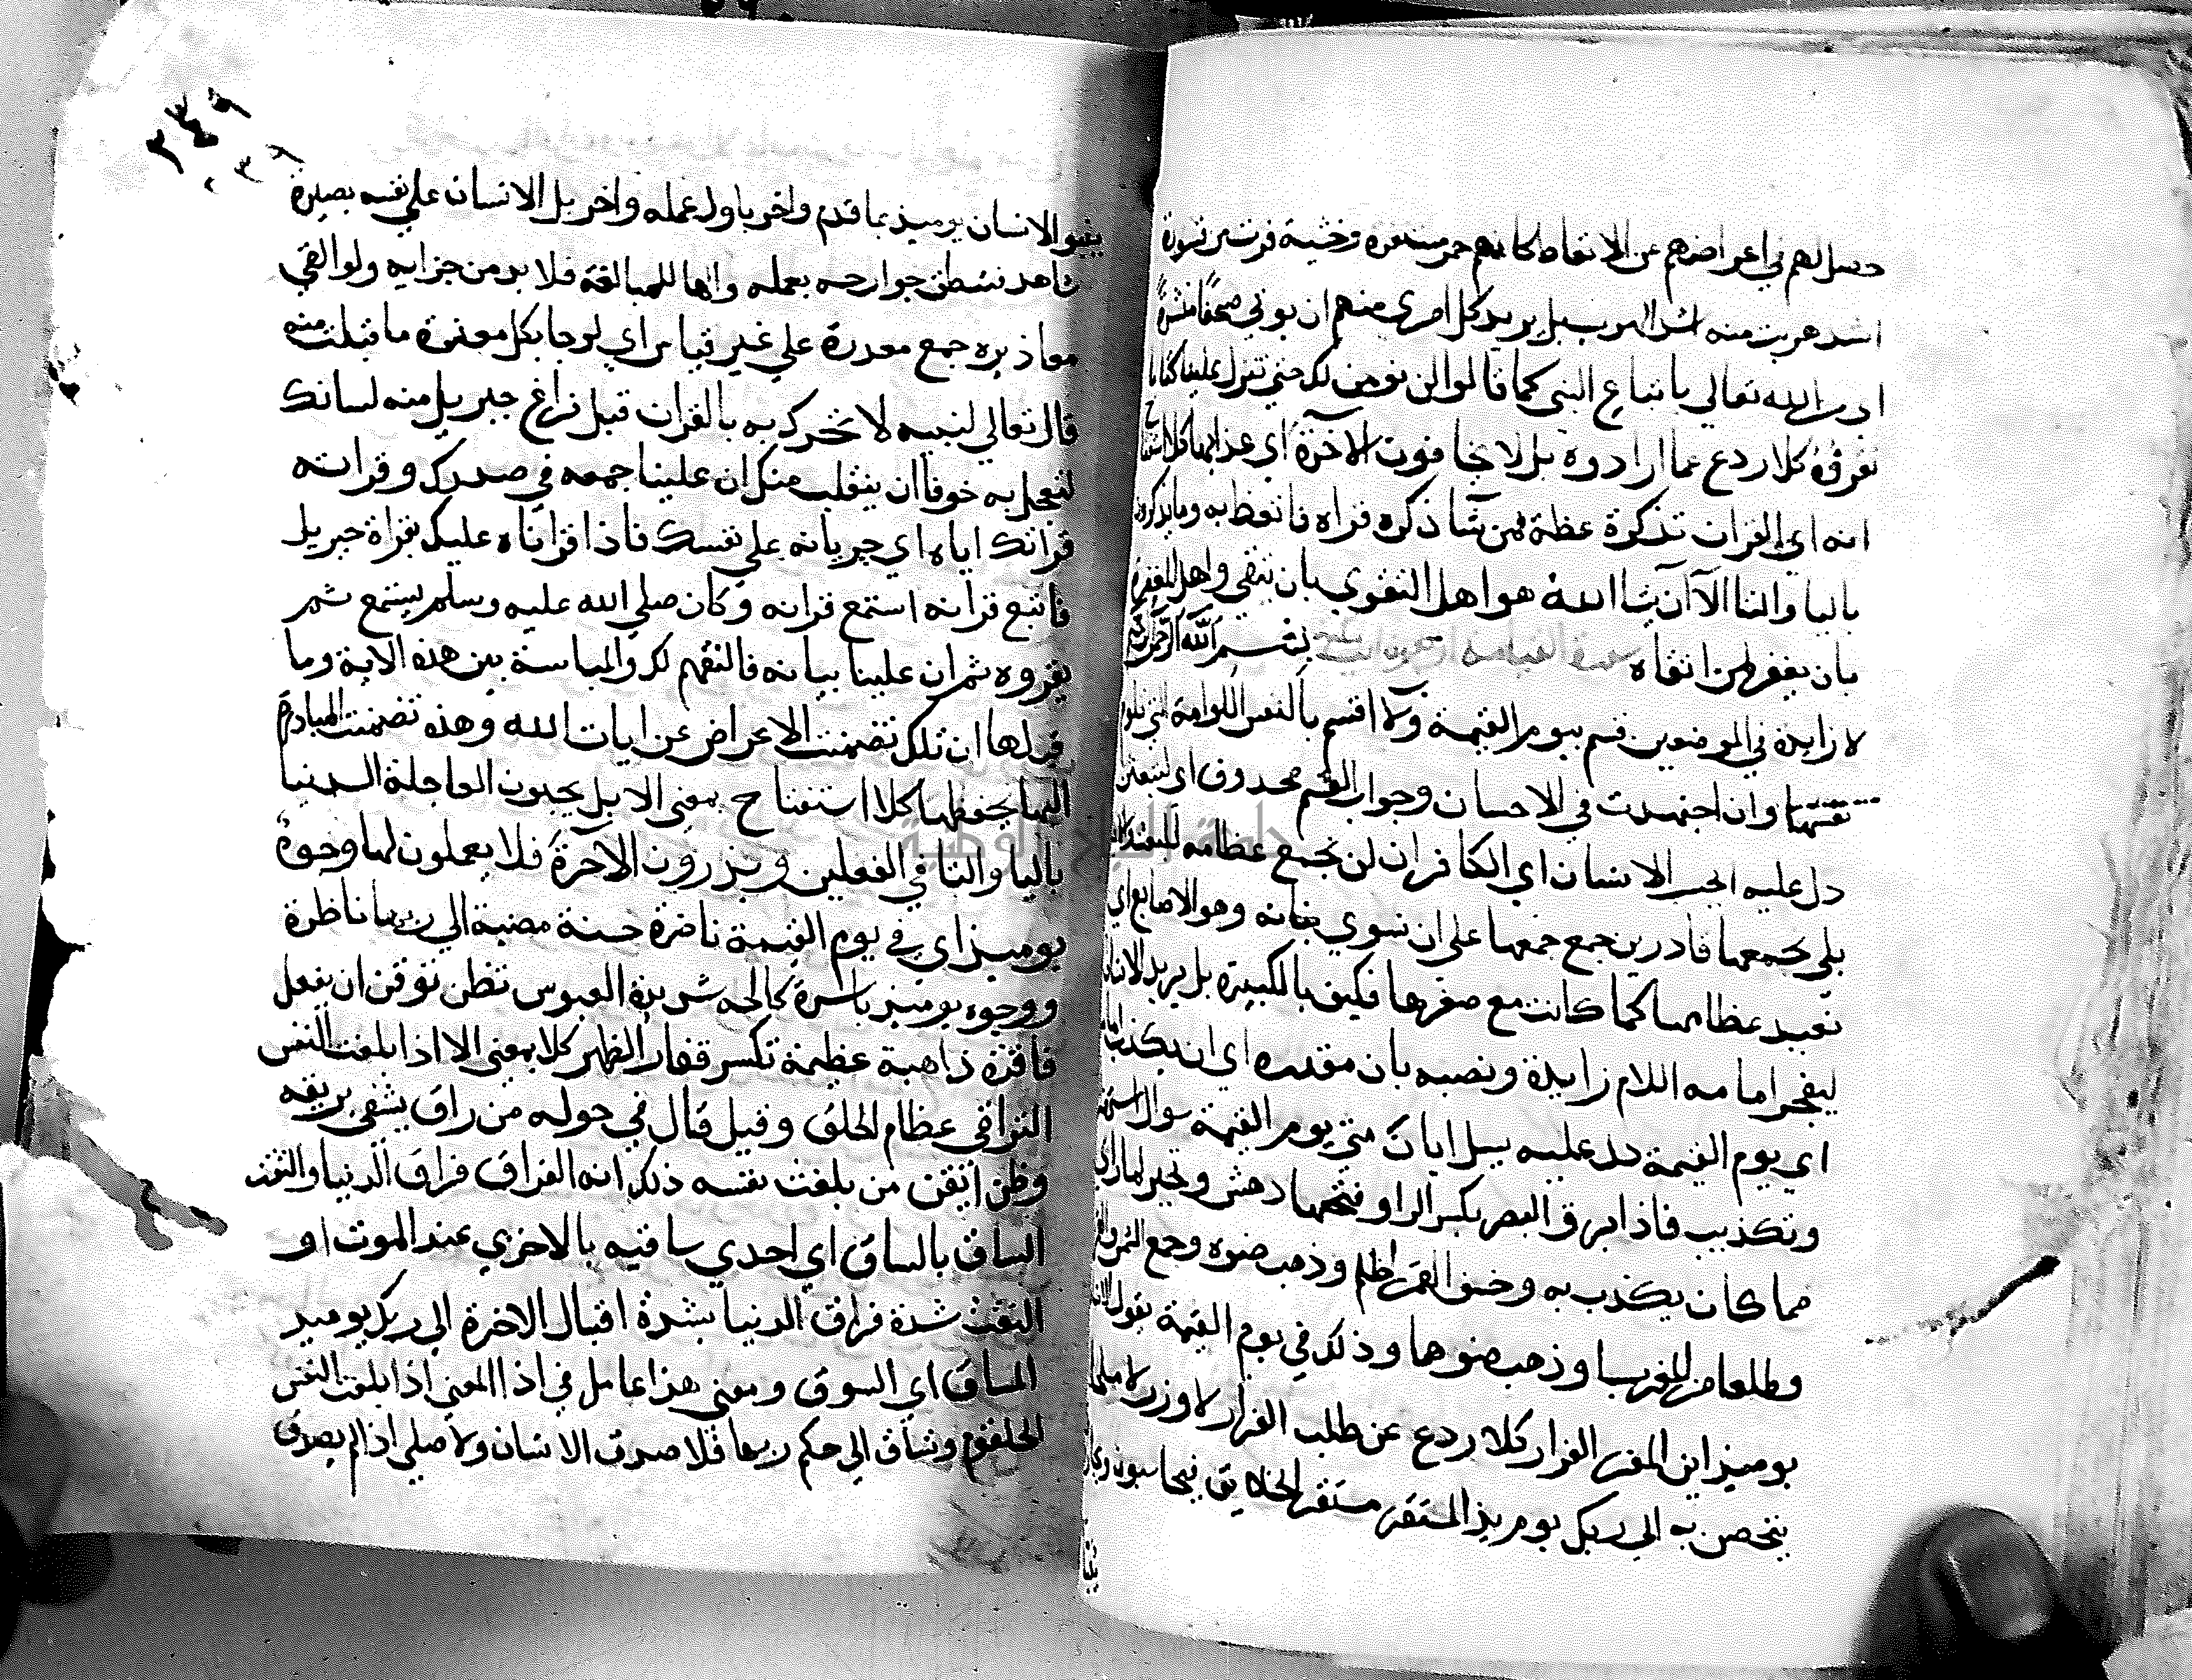 حصل لهم في اعراضهم عن الاتعاظ كانهم حمر مستنفرة وحشية فرت من قسورة
اسد هربت منه اشد الهرب بل يريد كل امرى منهم ان يوتي صحفا منشرة
اي من الله تعالي باتباع النبي كما قالوا لن نومن لك حتي تنزل علينا كتابا
نقروه كلا ردع عما ارادوه بل لا يخافون الاخرة اي عذابها كلا استفتاح
انه اي القران تذكرة عظة فمن شا ذكره قراه فاتعظ به وما يذكرون
باليا والتا الا ان يشا الله هو اهل التقوي بان يتقي واهل المغفرة
بان يغفر لمن اتقاه سورة القيامة اربعون اية بسم الله الرحمن الرحيم
لا زايدة في الموضعين قسم بيوم القيمة ولا اقسم بالنفس اللوامة التي تلوم
نفسها وان اجتهدت في الاحسان وجواب القسم محذوف اي لتبعثن
دل عليه ايحسب الانسان اي الكافر ان لن نجمع عظامه للبعث والاحيا
بلي نجمعها قادرين جمع جمعها علي ان نسوي بنانه وهو الاصابع اي
نعيد عظامها كما كانت مع صغرها فكيف بالكبيرة بل يريد الانسان
ليفجر امامه اللام زايدة ونصبه بان مقدره اي ان يكذب
اي يوم القيمة دل عليه يسل ايان متي يوم القيمة سوال استهزا
وتكذيب فاذا برق البصر بكسر الرا وفتحها دهش وتحير لما راي
مما كان يكذب به وخسف القمر اظلم وذهب ضوه وجمع الشمس والقمر
وطلعا من المغرب او ذهب ضوهما وذلك في يوم القيمة يقول الانسان
يوميذ اين المفر الفرار كلا ردع عن طلب الفرار لا وزر لا ملجا
يتحصن به الي ربك يوميذ المستقر مستقر الخلايق فيحاسبون ويجازون
ينبو
ينبو الانسان يوميذ بما قدم واخر باول عمله واخره بل الانسان علي نفسه بصيرة
شاهد تنطق جوارحه بعمله والها للمبالغة فلا بد من جزايه ولو القي
معاذيره جمع معذرة علي غير قياس اي لو جا بكل معذرة ما قبلت منه
قال تعالي لنبيه لا تحرك به بالقران قبل فراغ جبريل منه لسانك
لتعجل به خوفا ان ينفلت منك ان علينا جمعه في صدرك وقرانه
قراتك اياه اي جريانه علي نفسك فاذا قراناه عليك بقراة جبريل
فاتبع قرانه استمع قرانه وكان صلي الله عليه وسلم يستمع ثم
يقروه ثم ان علينا بيانه فالتفهم لك والمناسبة بين هذه الاية وما
قبلها ان تلك تضمنت الاعراض عن ايات الله وهذه تضمنت المبادرة
اليها بحفظها كلا استفتاح بمعني الا بل يحبون العاجلة الدنيا
باليا والتا في الفعلين ويذرون الاخرة فلا يعملون لها وجوه
يوميذ اي في يوم القيمة ناضرة حسنة مضية الي ربها ناظرة
ووجوه يوميذ باسرة كالحه شديدة العبوس تظن توقن ان يفعل
فاقرة داهية عظيمة تكسر فقار الظهر كلا بمعني الا اذا بلغت النفس
التراقي عظام الحلق وقيل قال في حوله من راق يشفي يرقيه
وظن ايقن من بلغت نفسه ذلك انه الفراق فراق الدنيا والتفت
الساق بالساق اي احدي ساقيه بالاخري عند الموت او
التفت شدة فراق الدنيا بشدة اقبال الاخرة الي ربك يوميذ
المساق اي السوق ومعني هذا عامل في اذا المعني اذا بلغت النفس
الحلقوم وتساق الي حكم ربها فلا صدق الانسان ولا صلي اذا لم يصدق